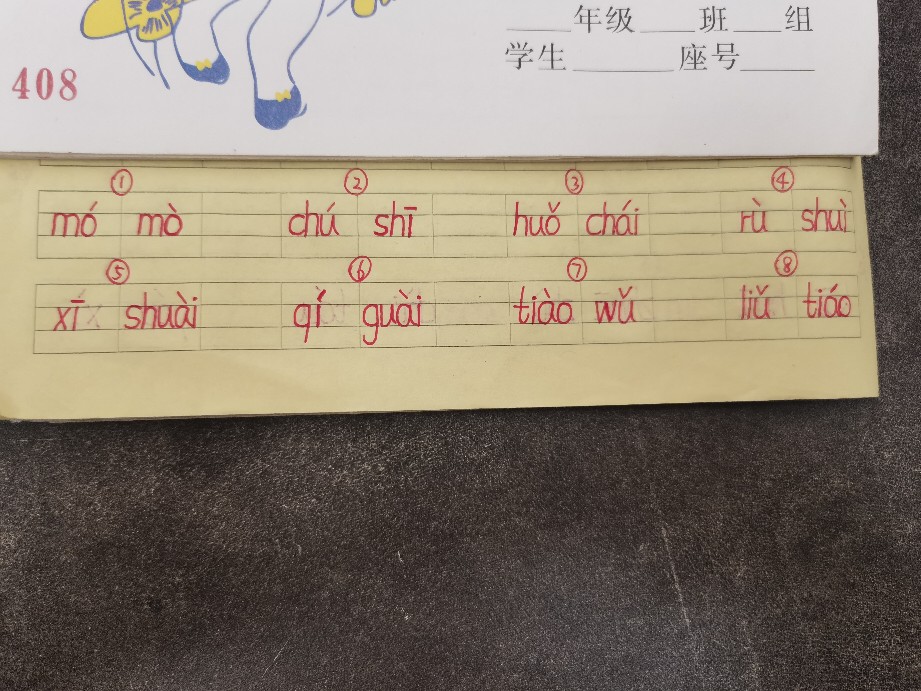 ____年级 ____班 ___组
408
学生________座号______
① ② ③ ④
mó mò chú shī huǒ chái rù shuì
⑤ ⑥ ⑦ ⑧
xī shuài qí guài tiào wǔ liǔ tiáo